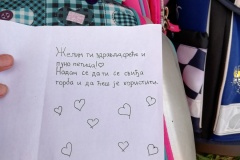 Желим ти здравља, среће и
пуно петица!♡
Надам се да ти се свиђа
торба и да ћеш је користити.